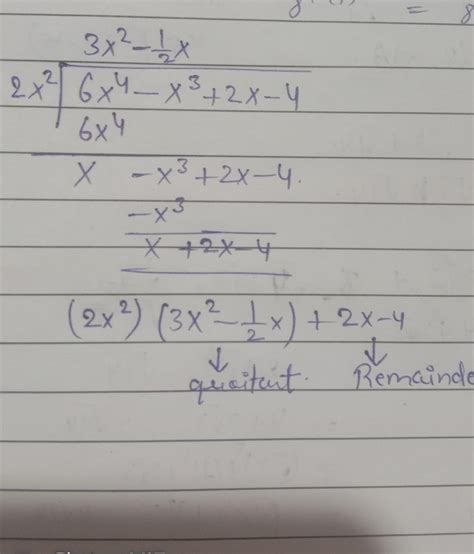 = 8
3x² - 1/2 x
2x² 6x⁴ - x³ + 2x - 4
6x⁴
x - x³ + 2x - 4.
-x³
x + 2x - 4
(2x²) (3x² - 1/2 x) + 2x - 4
↓ ↓
quoitant. Remainde